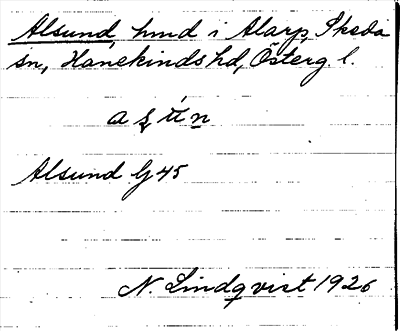 Alsund, hmd i Alarp, Skeda
sn, Hanekinds hd, Österg. l.
Alsund Gj 45
N. Lindqvist 1926